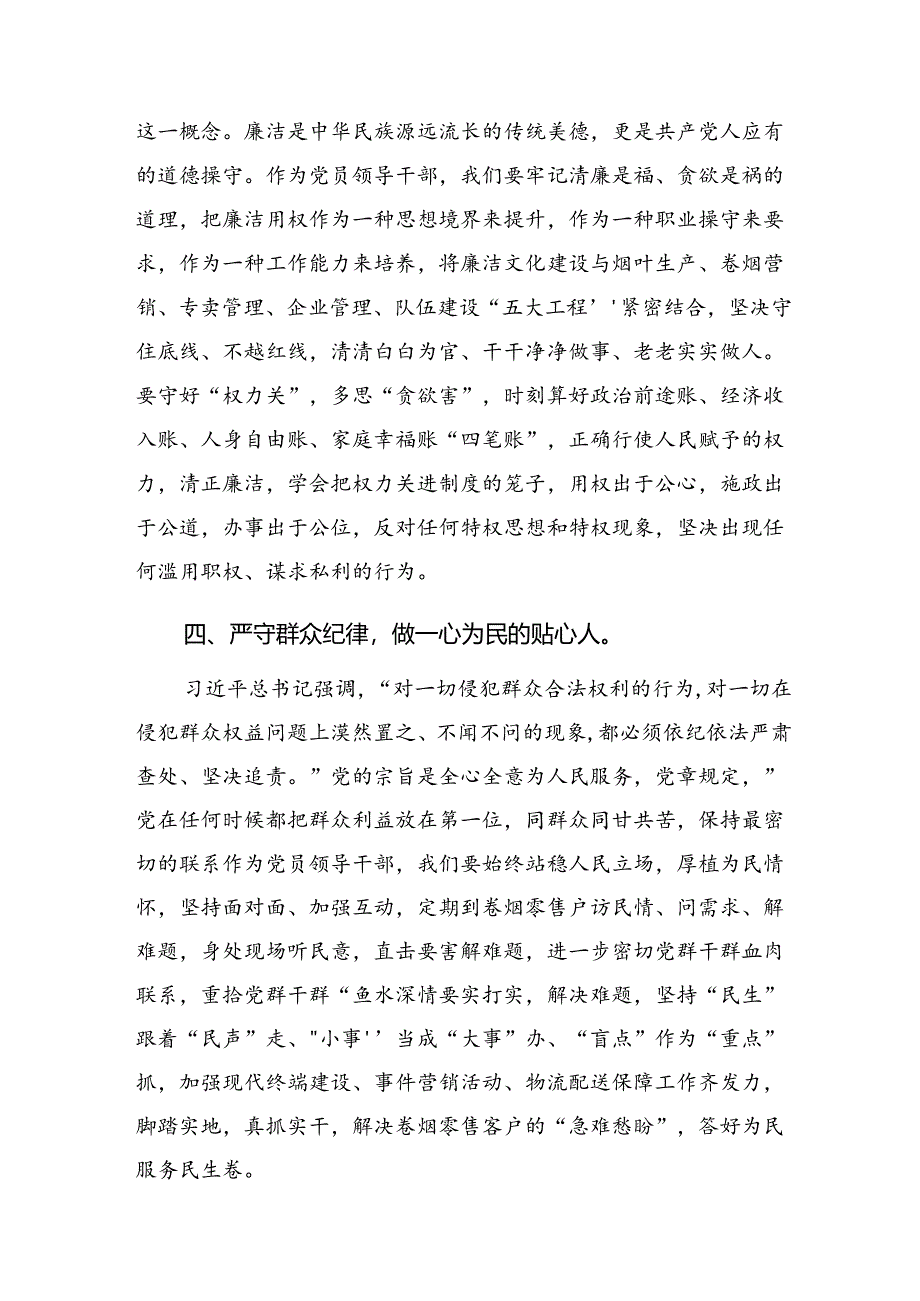 这一概念。廉洁是中华民族源远流长的传统美德，更是共产党人应有
的道德操守。作为党员领导干部，我们要牢记清廉是福、贪欲是祸的
道理，把廉洁用权作为一种思想境界来提升，作为一种职业操守来要
求，作为一种工作能力来培养，将廉洁文化建设与烟叶生产、卷烟营
销、专卖管理、企业管理、队伍建设“五大工程’'紧密结合，坚决守
住底线、不越红线，清清白白为官、干干净净做事、老老实实做人。
要守好“权力关”，多思“贪欲害”，时刻算好政治前途账、经济收
入账、人身自由账、家庭幸福账“四笔账”，正确行使人民赋予的权
力，清正廉洁，学会把权力关进制度的笼子，用权出于公心，施政出
于公道，办事出于公位，反对任何特权思想和特权现象，坚决出现任
何滥用职权、谋求私利的行为。
四、严守群众纪律，做一心为民的贴心人。
习近平总书记强调，“对一切侵犯群众合法权利的行为,对一切在
侵犯群众权益问题上漠然置之、不闻不问的现象,都必须依纪依法严肃
查处、坚决追责。”党的宗旨是全心全意为人民服务，党章规定，”
党在任何时候都把群众利益放在第一位，同群众同甘共苦，保持最密
切的联系作为党员领导干部，我们要始终站稳人民立场，厚植为民情
怀，坚持面对面、加强互动，定期到卷烟零售户访民情、问需求、解
难题，身处现场听民意，直击要害解难题，进一步密切党群干群血肉
联系，重拾党群干群“鱼水深情要实打实，解决难题，坚持“民生”
跟着“民声”走、"小事'’当成“大事”办、“盲点”作为“重点”
抓，加强现代终端建设、事件营销活动、物流配送保障工作齐发力，
脚踏实地，真抓实干，解决卷烟零售客户的“急难愁盼”，答好为民
服务民生卷。